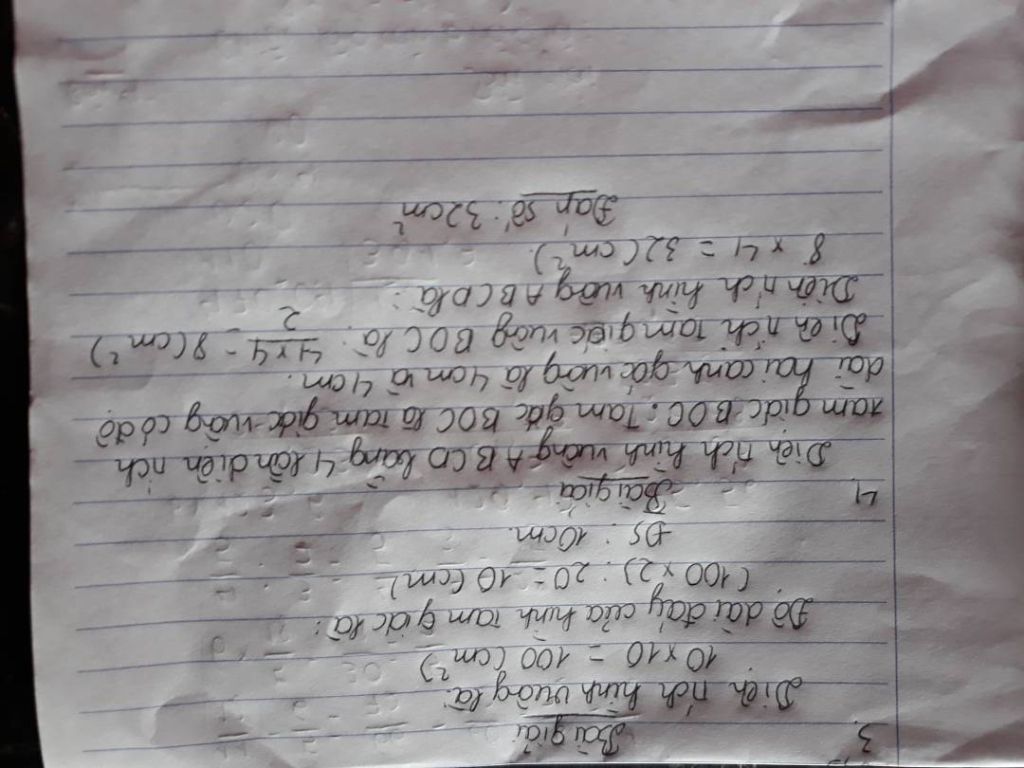 3. Bài giải
Diện tích hình vuông là:
10 x 10 = 100 (cm²)
Độ dài đáy của hình tam giác là:
(100 x 2) : 20 = 10 (cm)
ĐS: 10cm.
4. Bài giải
Diện tích hình vuông ABCD bằng 4 lần diện tích
tam giác BOC. Tam giác BOC là tam giác vuông có độ
dài hai cạnh góc vuông là 4cm và 4cm.
Diện tích tam giác vuông BOC là: 4x4/2 = 8 (cm²)
Diện tích hình vuông ABCD là:
8 x 4 = 32 (cm²).
Đáp số: 32cm²